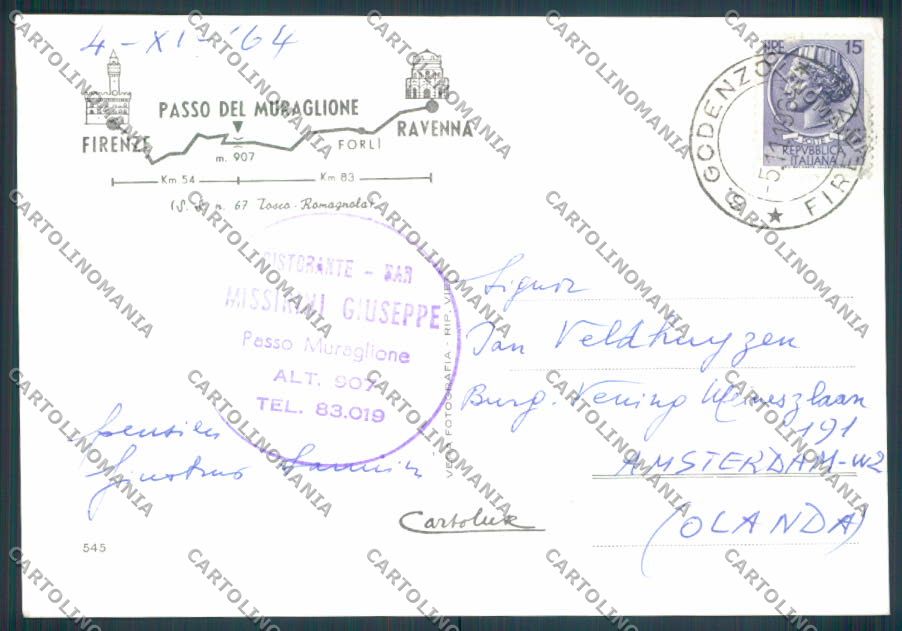 4-XI-'64
PASSO DEL MURAGLIONE
FIRENZE
RAVENNA
FORLÌ
m. 907
Km 54
Km 83
(S. S. n. 67 Tosco-Romagnola)
LIRE 15
POSTE
REPVBBLICA
ITALIANA
S. GODENZO
FIRENZE
RISTORANTE - BAR
MISSIRINI GIUSEPPE
Passo Muraglione
ALT. 907
TEL. 83.019
VERA FOTOGRAFIA - RIP. VIET.
Signor
Jan Veldhuyzen
Burg. Vening Meineszlaan
191
AMSTERDAM-W2
(OLANDA)
Cartolux
545
CARTOLINOMANIA